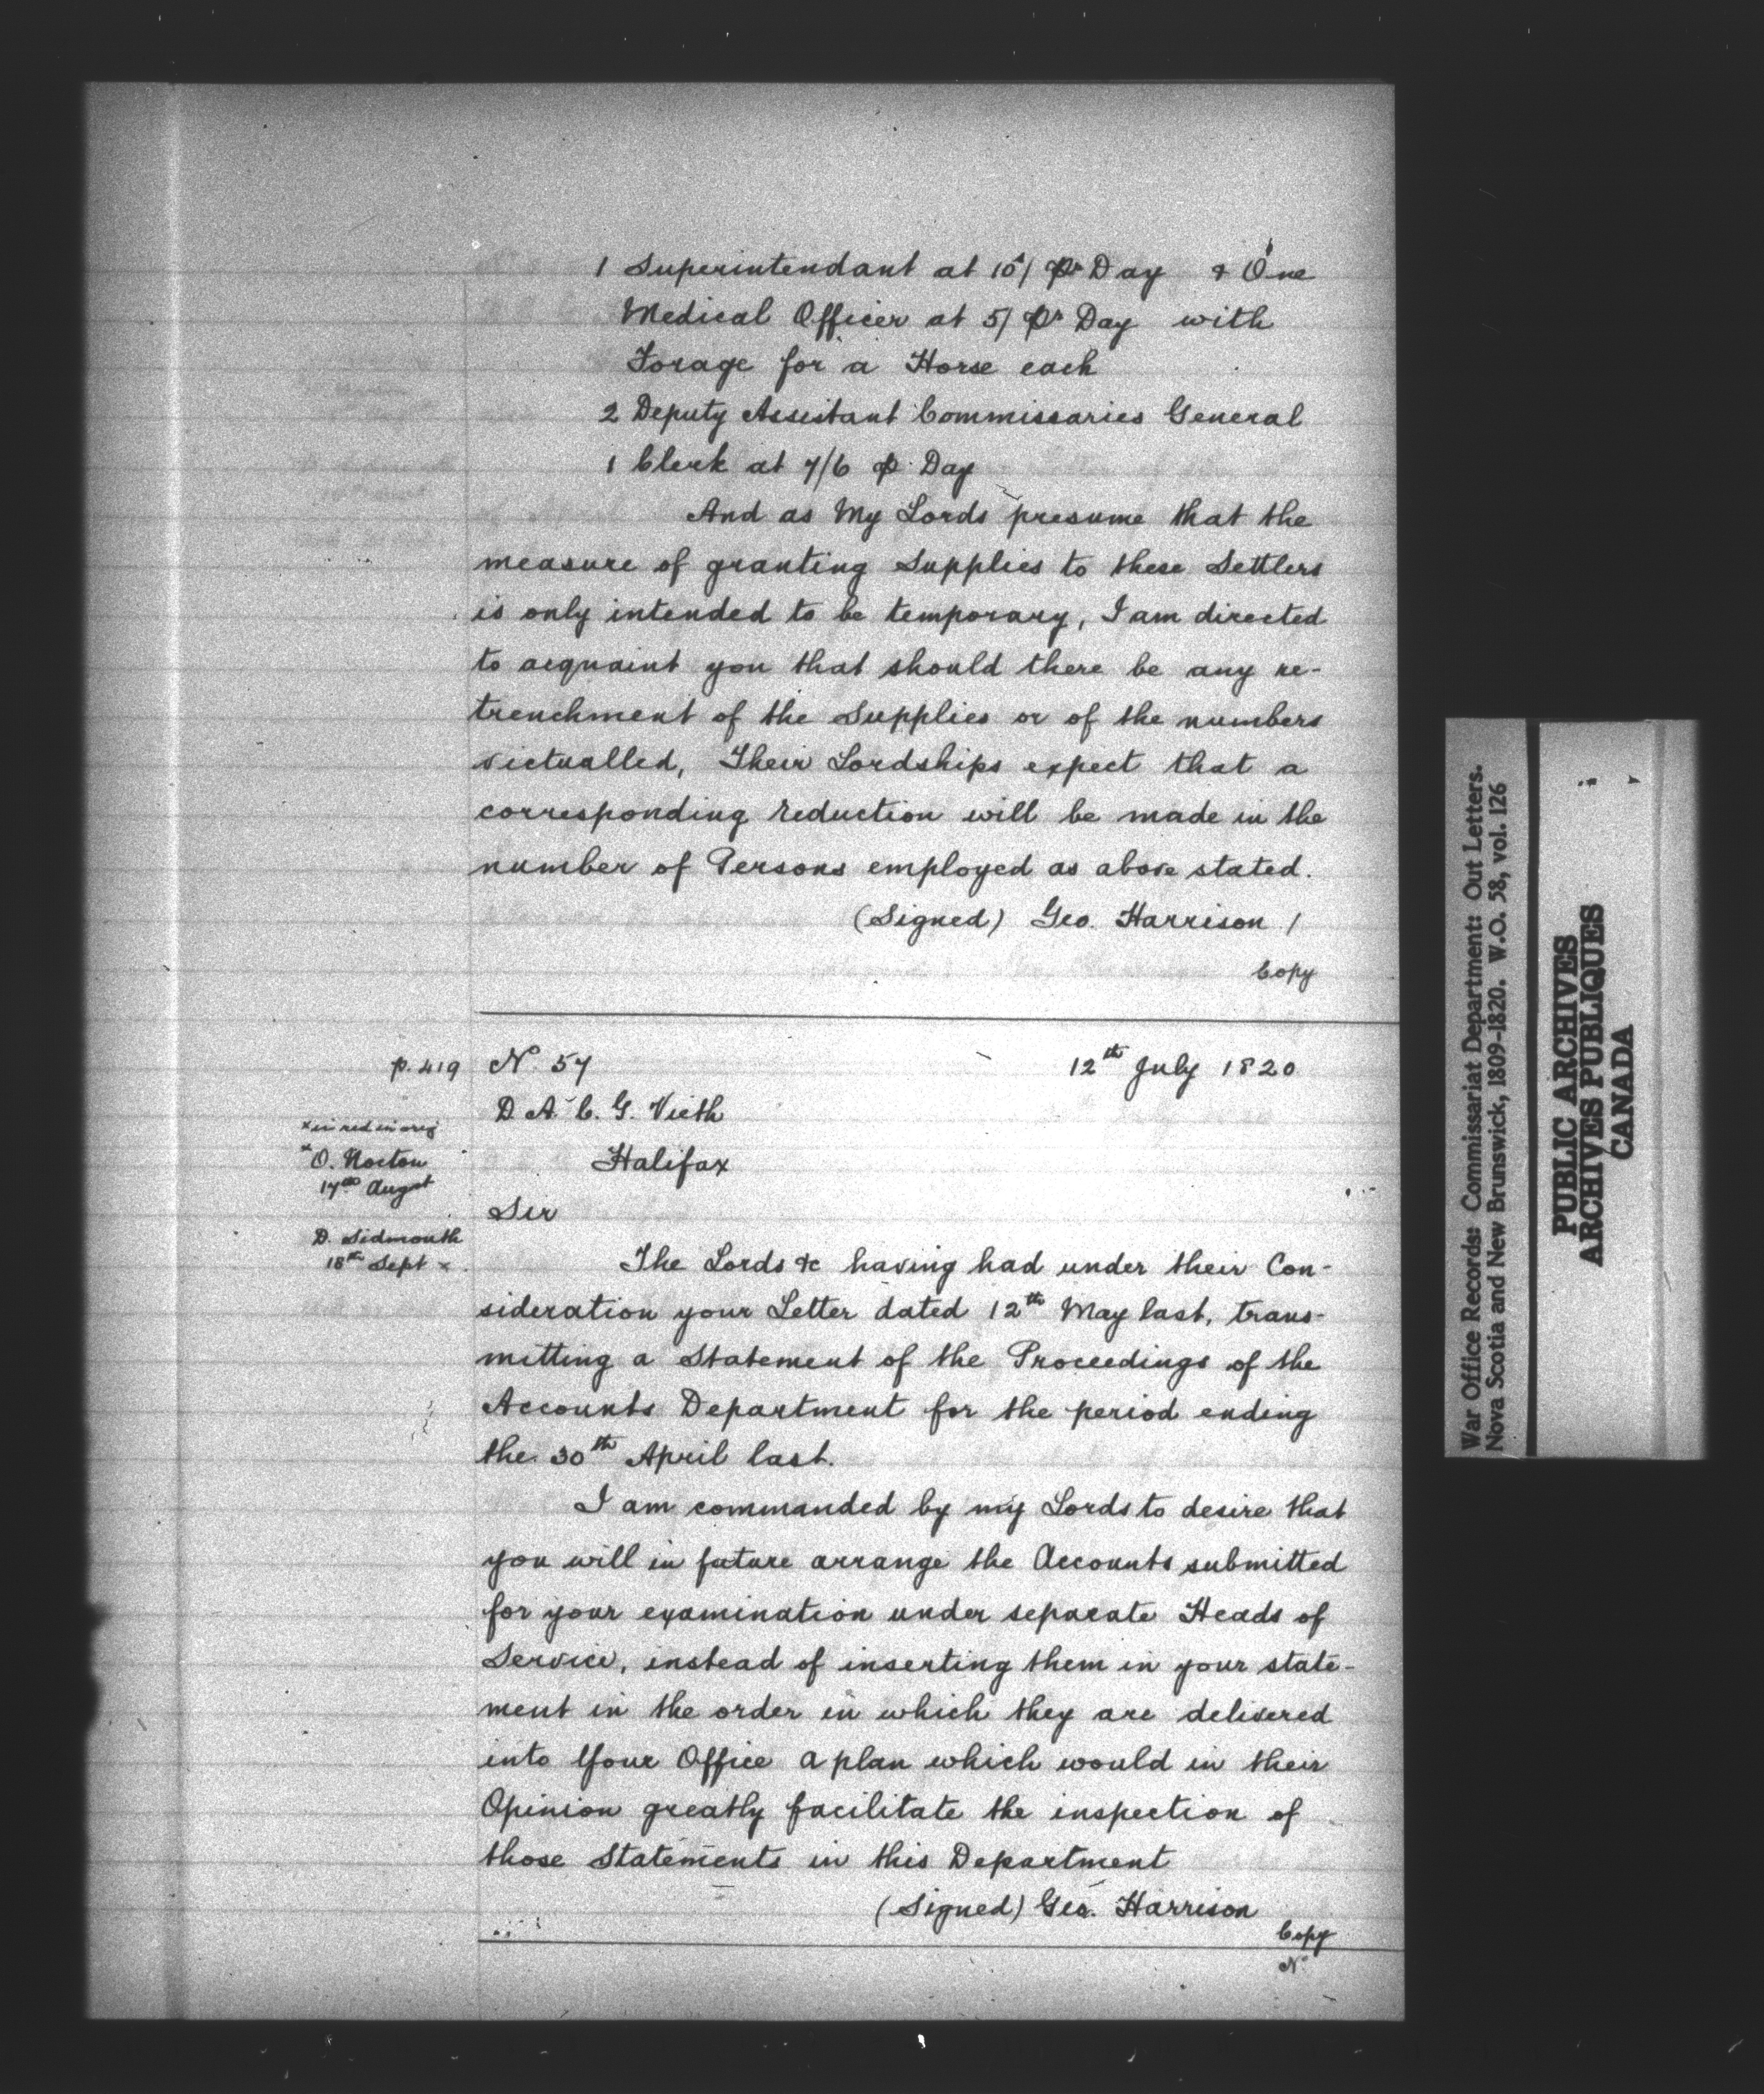 1 Superintendant at 10s/ pr Day & One
Medical Officer at 5/ pr Day with
Forage for a Horse each
2 Deputy Assistant Commissaries General
1 Clerk at 7/6 p Day
And as My Lords presume that the
measure of granting Supplies to these Settlers
is only intended to be temporary, I am directed
to acquaint you that should there be any re-
trenchment of the Supplies or of the numbers
victualled, Their Lordships expect that a
corresponding reduction will be made in the
number of Persons employed as above stated.
(Signed) Geo. Harrison /
Copy
p. 419
No 57
12th July 1820
D. A. C. G. Vieth
Halifax
x in red in orig
x O. Norton
17th Augst
D. Sidmouth
18th Sept x
Sir
The Lords &c having had under their Con-
sideration your Letter dated 12th May last, trans-
mitting a Statement of the Proceedings of the
Accounts Department for the period ending
the 30th April last.
I am commanded by my Lords to desire that
you will in future arrange the Accounts submitted
for your examination under separate Heads of
Service, instead of inserting them in your state-
ment in the order in which they are delivered
into Your Office a plan which would in their
Opinion greatly facilitate the inspection of
those Statements in this Department
(Signed) Geo. Harrison
Copy
No
War Office Records: Commissariat Department: Out Letters.
Nova Scotia and New Brunswick, 1809-1820. W.O. 58, vol. 126
PUBLIC ARCHIVES
ARCHIVES PUBLIQUES
CANADA